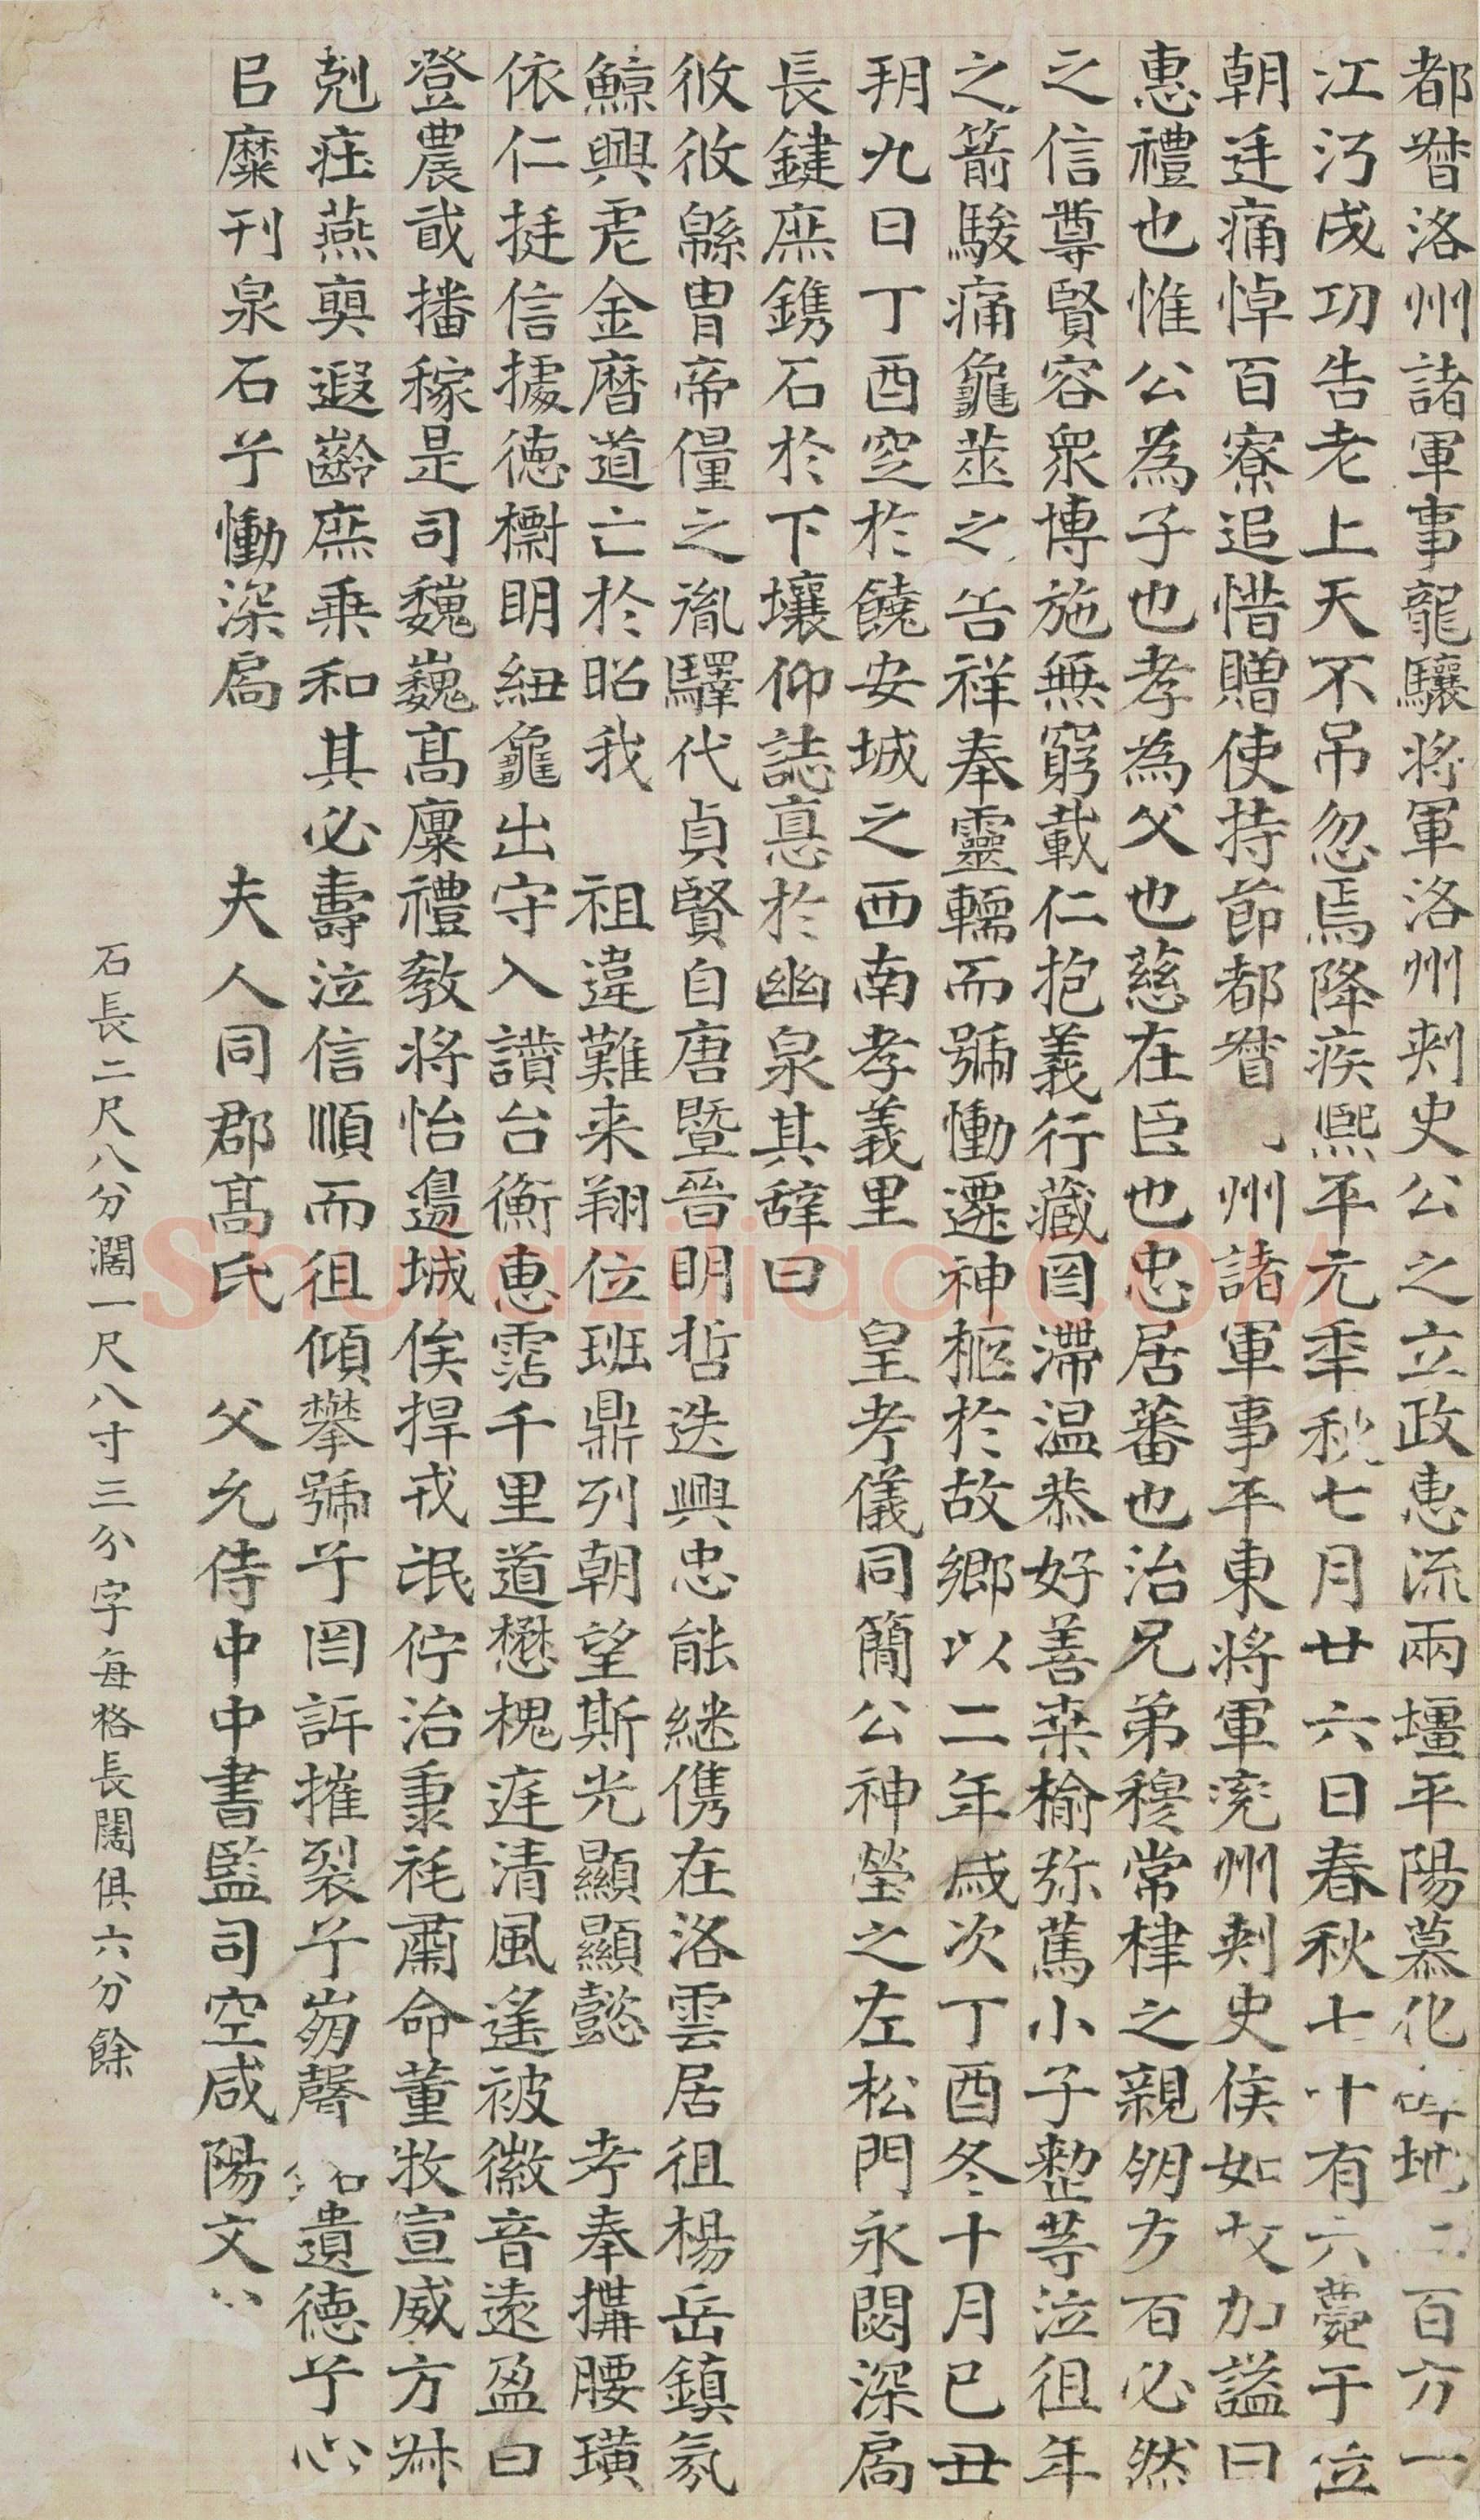 都督洛州諸軍事龍驤將軍洛州刾史公之立政惠流兩壃平陽慕化地百方一
江沔成功告老上天不吊忽焉降疾熙平元秊秋七月廿六日春秋七十有六薨于位
朝迋痛悼百寮追惜贈使持節都督州諸軍事平東將軍兖州刾史侯如故加謚曰
惠禮也惟公為子也孝為父也慈在臣也忠居蕃也治兄弟穆常棣之親朋方百必然
之信尊賢容衆博施無窮載仁抱義行藏罔滯温恭好善桒榆弥篤小子整等泣徂年
之箭駿痛龜莁之告祥奉靈轜而號慟遷神柩於故鄉以二年歲次丁酉冬十月己丑
玥九日丁酉窆於饒安城之西南孝義里　皇考儀同簡公神塋之左松門永閟深扃
長鍵庶鐫石於下壤仰誌悳於幽泉其辝曰
攸攸緜冑帝僵之胤驛代貞賢自唐暨晉明哲迭興忠能継儁在洛雲居徂楊岳鎮氛
鯨興虎金曆道亡於昭我　祖違難来翔位班鼎列朝望斯光顯顯懿　考奉搆腰璜
依仁挺信據徳檦明紐龜出守入讃台衡惠霑千里道懋槐庭清風遙被徽音遠盈曰
登農戓播稼是司魏巍髙廪禮敎將怡邊城俟捍戎氓佇治秉秏肅命董牧宣威方㳟
剋疘燕奭遐齡庶乗和其必壽泣信順而徂傾攀號兮罔訴摧裂兮崩䏈銘遺徳兮心
㠯糜刊泉石兮慟深扃　夫人同郡髙氏　父允侍中中書監司空咸陽文公
石長二尺八分濶一尺八寸三分字每格長闊俱六分餘